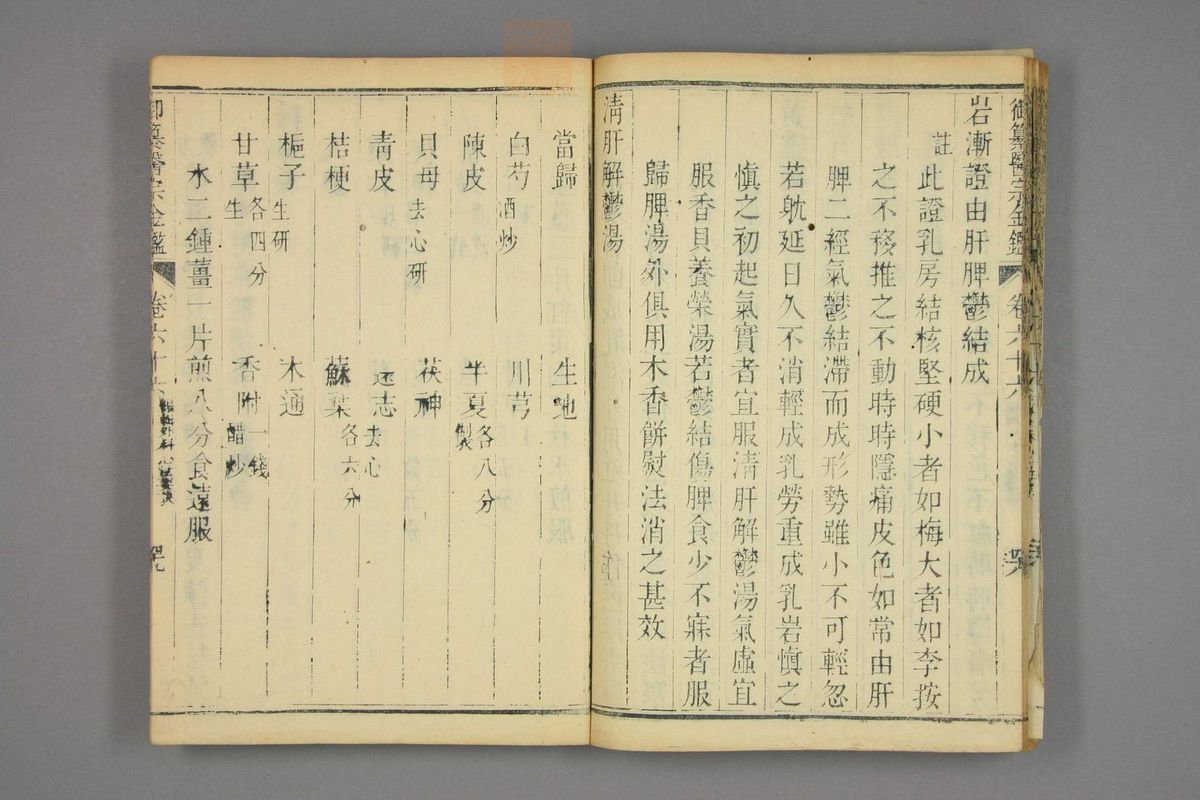 御纂醫宗金鑑
卷六十六
岩漸證由肝脾鬱結成
註此證乳房結核堅硬小者如梅大者如李按
之不移推之不動時時隱痛皮色如常由肝
脾二經氣鬱結滯而成形勢雖小不可輕忽
若躭延日久不消輕成乳勞重成乳岩慎之
慎之初起氣實者宜服清肝解鬱湯氣虛宜
服香貝養榮湯若鬱結傷脾食少不寐者服
歸脾湯外俱用木香餅熨法消之甚效
清肝解鬱湯
當歸 生地
白芍酒炒 川芎
陳皮 半夏各八分製
貝母去心研 茯神
青皮 遠志去心
桔梗 蘇葉各六分
梔子生研 木通
甘草各四分生 香附一錢醋炒
水二鍾薑一片煎八分食遠服
御纂醫宗金鑑 卷六十六 編輯外科心法要訣 四九